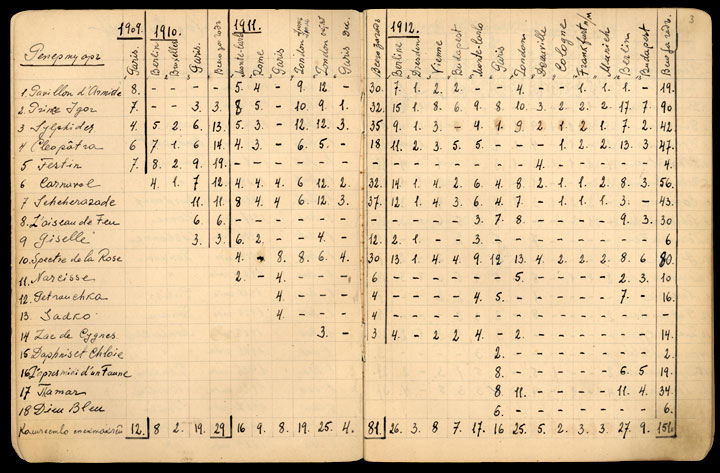 3
1909. 1910. 1911. 1912.
Репертуаръ Paris. Berlin Bruxelles Paris. Monte-Carlo Rome Paris London Paris Dec. Berlin Dresden Vienne Budapest Monte-Carlo Paris London Deauville Cologne Frankfurt a/M Munich Berlin Budapest
1 Pavillon d'Armide 8. - - - - 5. 4 - 9. 12 - 30. 7. 1. 2. 2 - - 4. - - 1. 1. 1. - 19.
2. Prince Igor 7. - - 3. 3. 8 5. - 10. 9. 1. 32. 15. 1. 8. 6. 9. 8 10. 3. 2. 2. 2. 17. 7. 90
3 Sylphides 4. 5. 2. 6. 13. 5. 3. - 12. 12. 3. 35. 9. 1. 3. - 4. 1. 9. 2. 1. 2. 1. 7. 2. 42.
4 Cleopâtra 6. 7. 1. 6 14. 4 3. - 6. 5. - 18 11. 2. 3. 5. 5. - - - 1. 2. 2. 13. 3 47.
5 Festin 7. 8. 2. 9. 19. - - - - - - - - - - - - - - 4. - - - - - 4.
6 Carnaval 4. 1. 7 12. 4. 4. 4 6. 12. 2 32. 14. 1. 4. 2. 6. 4. 8 2. 1. 1. 2. 8. 3. 56.
7 Scheherazade - - 11. 11. 8 4. 4 6. 12. 3. 37. 12. 1. 4. 3. 6. 4. 7. - 1. 1. 1. 3. - 43.
8. L'oiseau de Feu 6. 6. - - - - - - - - - - - 3. 7. 8. - - - - 9. 3. 30
9 Giselle 3. 3. 6. 2. - - 4. - 12. 2. 1. - - 3. - - - - - - - - 6
10. Spectre de la Rose 4. - 8. 8. 6. 4. 30 13. 1. 4. 4. 9. 12. 13. 4. 2. 2. 2. 8. 6 80.
11. Narcisse 2. - 4. - - - 6 - - - - - - 5. - - - - 2. 3. 10
12. Petrouchka 4. - - - 4 - - - - 4. 5. - - - - - 7. - 16.
13. Sadko 4. - - - 4 - - - - - - - - - - - - - -
14 Lac de Cygnes 3. - 3 4. - 2 2 4. - 2. - - - - - - 14.
15 Daphnis et Chloie 2. - - - - - - - 2.
16 L'apresmidi d'un Faune 8. - - - - - 6. 5. 19.
17 Tamar 8. 11. - - - - 11. 4. 34.
18 Dieu Bleu 6. - - - - - - - 6.
Количество спектаклей 12. 8 2. 19. 29. 16 9. 8. 19. 25. 4. 81. 26. 3. 8 7. 17. 16 25. 5. 2. 3. 3. 27. 9. 151.